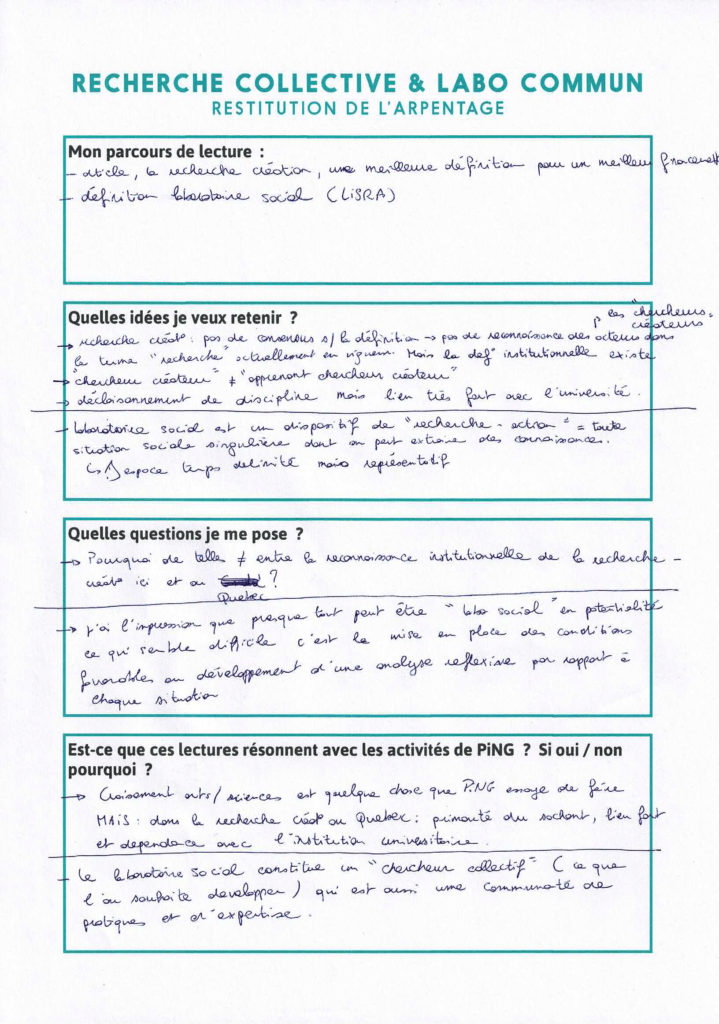 RECHERCHE COLLECTIVE & LABO COMMUN
RESTITUTION DE L'ARPENTAGE
Mon parcours de lecture :
- article, la recherche création, une meilleure définition pour un meilleur financement
- définition laboratoire social (LiSRA)
Quelles idées je veux retenir ?
les "chercheurs-
créateurs
→ recherche créat° : pas de consensus s/ la définition → pas de reconnaissance des acteurs dans
le terme "recherche" actuellement en vigueur. Mais la def° institutionnelle existe
→ "chercheur créateur" ≠ "apprenant chercheur créateur"
→ décloisonnement de discipline mais lien très fort avec l'université.
- laboratoire social est un dispositif de "recherche-action" = toute
situation sociale singulière dont on peut extraire des connaissances.
↳ espace temps delimité mais représentatif
Quelles questions je me pose ?
→ Pourquoi de telles ≠ entre la reconnaissance institutionnelle de la recherche-
créat° ici et au ?
Quebec
→ j'ai l'impression que presque tout peut être "labo social" en potentialité
ce qui semble difficile c'est la mise en place des conditions
favorables au développement d'une analyse reflexive par rapport à
chaque situation
Est-ce que ces lectures résonnent avec les activités de PiNG ? Si oui / non
pourquoi ?
→ Croisement arts/sciences est quelque chose que PiNG essaye de faire
MAiS : dans la recherche créat° au Quebec : primauté du sachant, lien fort
et dependance avec l'institution universitaire.
- Le laboratoire social constitue un "chercheur collectif" (ce que
l'on souhaite developper) qui est aussi une communauté de
pratiques et d'expertise.